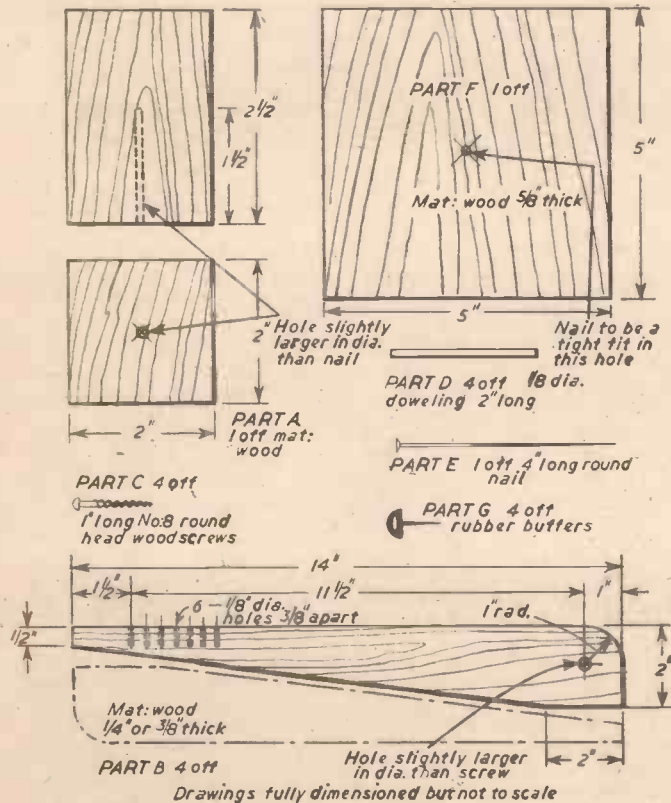 2½"
1½"
PART F 1 off
Mat: wood ⅝" thick
5"
5"
2"
Hole slightly
larger in dia.
than nail
Nail to be a
tight fit in
this hole
2"
PART A
1 off mat:
wood
PART D 4 off ⅛ dia.
doweling 2" long
PART E 1 off 4" long round
nail
PART C 4 off
1" long No:8 round
head woodscrews
PART G 4 off
rubber buffers
14"
1½"
11½"
1"
6 – ⅛" dia.
holes ⅜" apart
1" rad.
½"
2"
Mat: wood
¼" or ⅜" thick
2"
Hole slightly larger
in dia. than screw
PART B 4 off
Drawings fully dimensioned but not to scale